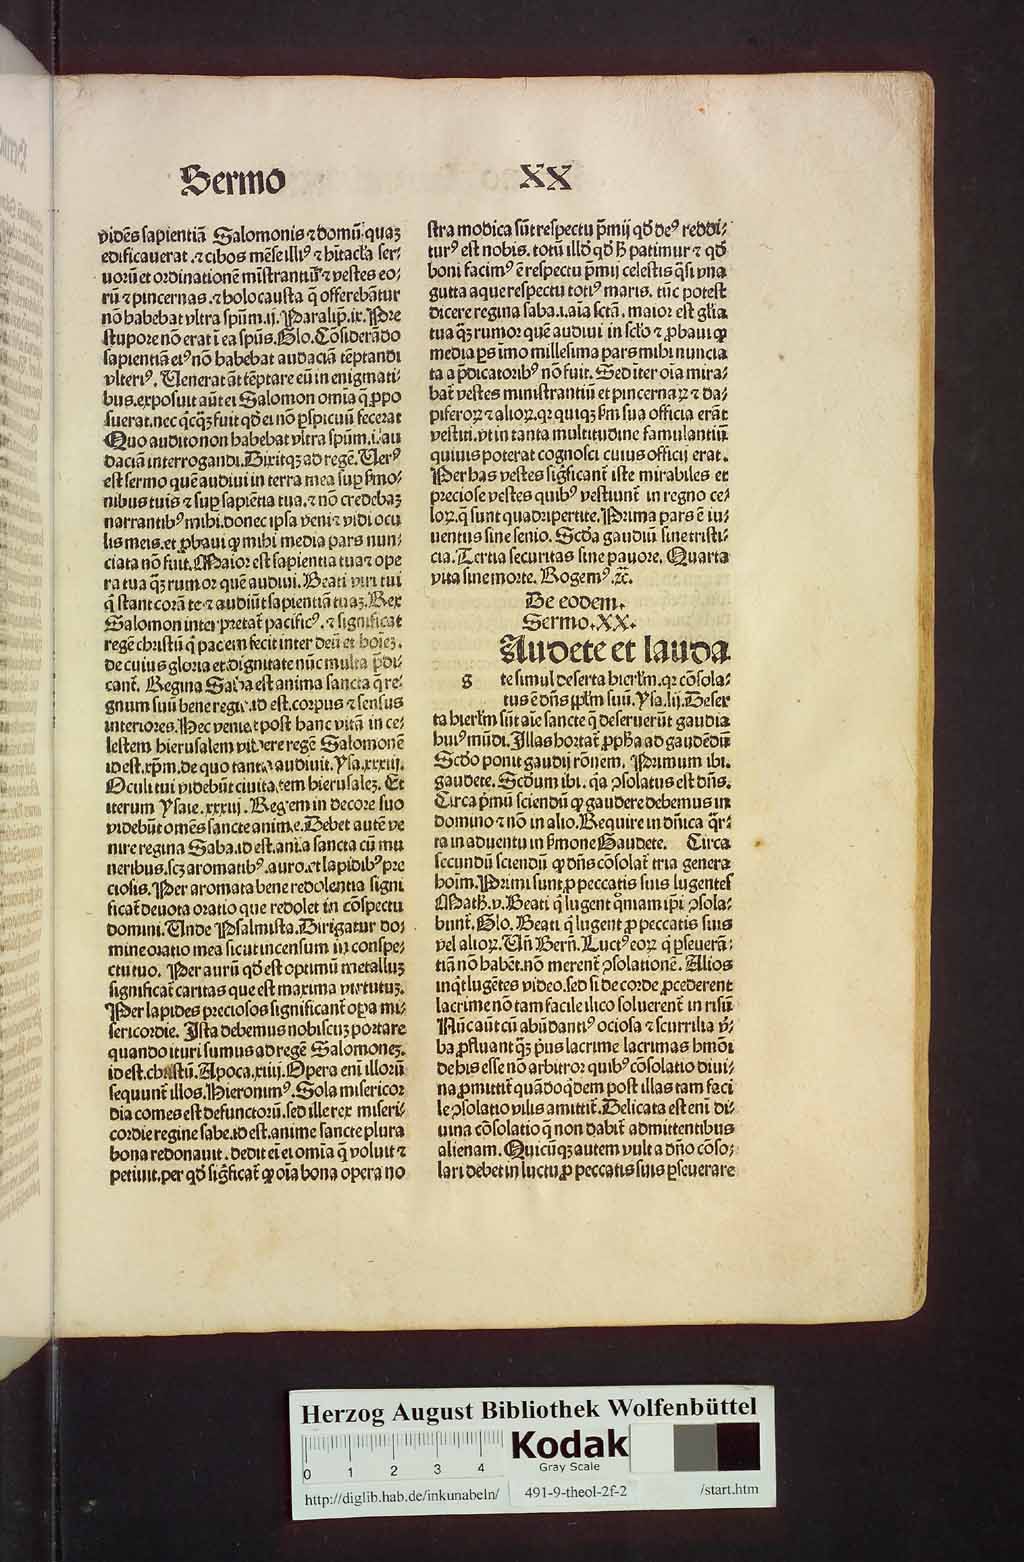 Sermo XX
vidēs sapientiā Salomonis ⁊ domū quaꝫ
edificauerat .⁊ cibos mēse illiꝰ ⁊ hītacl'a ser⸗
uorū et ordinationē mīstrantiū ⁊ vestes eo⸗
rū ⁊ pincernas .⁊ holocausta q̄ offerebātur
nō habebat vltra spūm .ij. Paralip .ix. Pre
stupore nō erat ī ea spūs. Glo. Cōsiderādo
sapientiā eiꝰ nō habebat audaciā tēptandi
vlteriꝰ. Uenerat āt tēptare eū in enigmati⸗
bus. exposuit aūt ei Salomon omīa q̄ ꝓpo
suerat. nec q̄cqꝫ fuit qd̄ ei nō ꝑspicuū fecerat
Quo audito non habebat vltra spūm .i. au
daciā interrogandi. Dixitqꝫ ad regē. Uerꝰ
est sermo quē audiui in terra mea suꝑ s̄mo⸗
nibus tuis ⁊ suꝑ sapiētia tua. ⁊ nō credebaꝫ
narrantibꝰ mihi. donec ipsa veni ⁊ vidi ocu
lis meis. et ꝓbaui ꝙ mihi media pars nun⸗
ciata nō fuit. Maior est sapientia tua ⁊ ope
ra tua q̄ꝫ rumor quē audiui. Beati viri tui
q̄ stant corā te ⁊ audiūt sapientiā tuaꝫ. Rex
Salomon interpretat᷑ pacificꝰ. ⁊ significat
regē christū q̄ pacem fecit inter deū et hoīeꝫ.
de cuius gloria et dignitate nūc multa p̄di⸗
cant᷑. Regina Saba est anima sancta q̄ re⸗
gnum suū bene regit. id est. corpus ⁊ sensus
interiores. Hec veniet post hanc vitā in ce⸗
lestem hierusalem videre regē Salomonē
id est. xp̄m. de quo tanta audiuit. Ysa. xxxiij.
Oculi tui videbūt ciuitatem hierusaleꝫ. Et
iterum Ysaie .xxxiij. Regem in decore suo
videbūt omēs sancte anime. Debet autē ve
nire regina Saba. id est. anīa sancta cū mu
neribus. scꝫ aromatibꝰ. auro. et lapidibꝰ pre
ciosis. Per aromata bene redolentia signi
ficat᷑ deuota oratio que redolet in cōspectu
domini. Unde Psalmista. Dirigatur do⸗
mine oratio mea sicut incensum in conspe⸗
ctu tuo. Per aurū qd̄ est optimū metalluꝫ
significat᷑ caritas que est maxima virtutuꝫ.
Per lapides preciosos significant᷑ oꝑa mi⸗
sericordie. Ista debemus nobiscuꝫ portare
quando ituri sumus ad regē Salomoneꝫ.
id est. christū. Apoca. xiiij. Opera enī illorū
sequunt᷑ illos. Hieronimꝰ. Sola misericor
dia comes est defunctorū. sed ille rex miseri⸗
cordie regine sabe. id est. anime sancte plura
bona redonauit. dedit eī ei omīa q̄ voluit ⁊
petiuit. per qd̄ sig̃ficat᷑ ꝙ oīa bona opera no
stra modica sūt respectu p̄mij qd̄ deꝰ reddi⸗
turꝰ est nobis. totū illd̄ qd̄ h̄ patimur ⁊ qd̄
boni facimꝰ ē respectu p̄mij celestis q̄si vna
gutta aque respectu totiꝰ maris. tūc potest
dicere regina saba .i. aīa sct̄ā. maior est gl'ia
tua q̄ꝫ rumor quē audiui in scl'o ⁊ ꝓbaui ꝙ
media ꝑs īmo millesima pars mihi nuncia
ta a p̄dicatoribꝰ nō fuit. Sed iter oīa mira⸗
bat᷑ vestes ministrantiū et pincernaꝝ ⁊ da⸗
piferoꝝ ⁊ alioꝝ. qꝛ quiqꝫ s̄m sua officia erāt
vestiti. vt in tanta multitudine famulantiū
quiuis poterat cognosci cuius officij erat.
Per has vestes sig̃ficant᷑ iste mirabiles et
preciose vestes quibꝰ vestiunt᷑ in regno ce⸗
loꝝ. q̄ sunt quadripertite. Prima pars ē iu⸗
uentus sine senio. Scd̄a gaudiū sine tristi⸗
cia. Tertia securitas sine pauore. Quarta
vita sine morte. Rogemꝰ .⁊c̄.
De eodem.
Sermo .XX.
Audete et lauda
g te simul deserta hierl'm. qꝛ cōsola⸗
tus ē dn̄s ppl'm suū. Ysa. lij. Deser
ta hierl'm sūt aīe sancte q̄ deseruerūt gaudia
huiꝰ mūdi. Illas hortat᷑ ꝓph̄a ad gaudēdū
Scd̄o ponit gaudij rōnem. Primum ibi.
gaudete. Scd̄um ibi. q̄a ꝯsolatus est dn̄s.
Circa p̄mū sciendū ꝙ gaudere debemus in
domino ⁊ nō in alio. Require in dn̄ica q̄r⸗
ta in aduentu in s̄mone Gaudete. Circa
secundū sciendū ꝙ dn̄s cōsolat᷑ tria genera
hoīm. Primi sunt ꝓ peccatis suis lugentes
Math. v. Beati q̄ lugent qm̄iam ip̄i ꝯsola⸗
bunt᷑. Glo. Beati q̄ lugent ꝓ peccatis suis
vel alioꝝ. Un̄ Bern̄. Luctꝰ eoꝝ q̄ ꝑseuerā⸗
tiā nō habēt. nō merent᷑ ꝯsolationē. Alios
inq̄t lugētes video. sed si de corde ꝓcederent
lacrime nō tam facile ilico soluerent᷑ in risū
Nūc aūt cū abūdantiꝰ ociosa ⁊ scurrilia v̄⸗
ba ꝓfluant q̄ꝫ pͥus lacrime lacrimas hmōi
dehis esse nō arbitror quibꝰ cōsolatio diui⸗
na ꝓmittit᷑ quādoq̄dem post illas tam faci
le ꝯsolatio vilis amittit᷑. Delicata est enī di⸗
uina cōsolatio q̄ non dabit᷑ admittentibus
alienam. Quicūqꝫ autem vult a dn̄o cōso⸗
lari debet in luctu ꝓ peccatis suis ꝑseuerare
Herzog August Bibliothek Wolfenbüttel
0 1 2 3 4
Kodak
Gray Scale
http://diglib.hab.de/inkunabeln/ 491-9-theol-2f-2 /start.htm